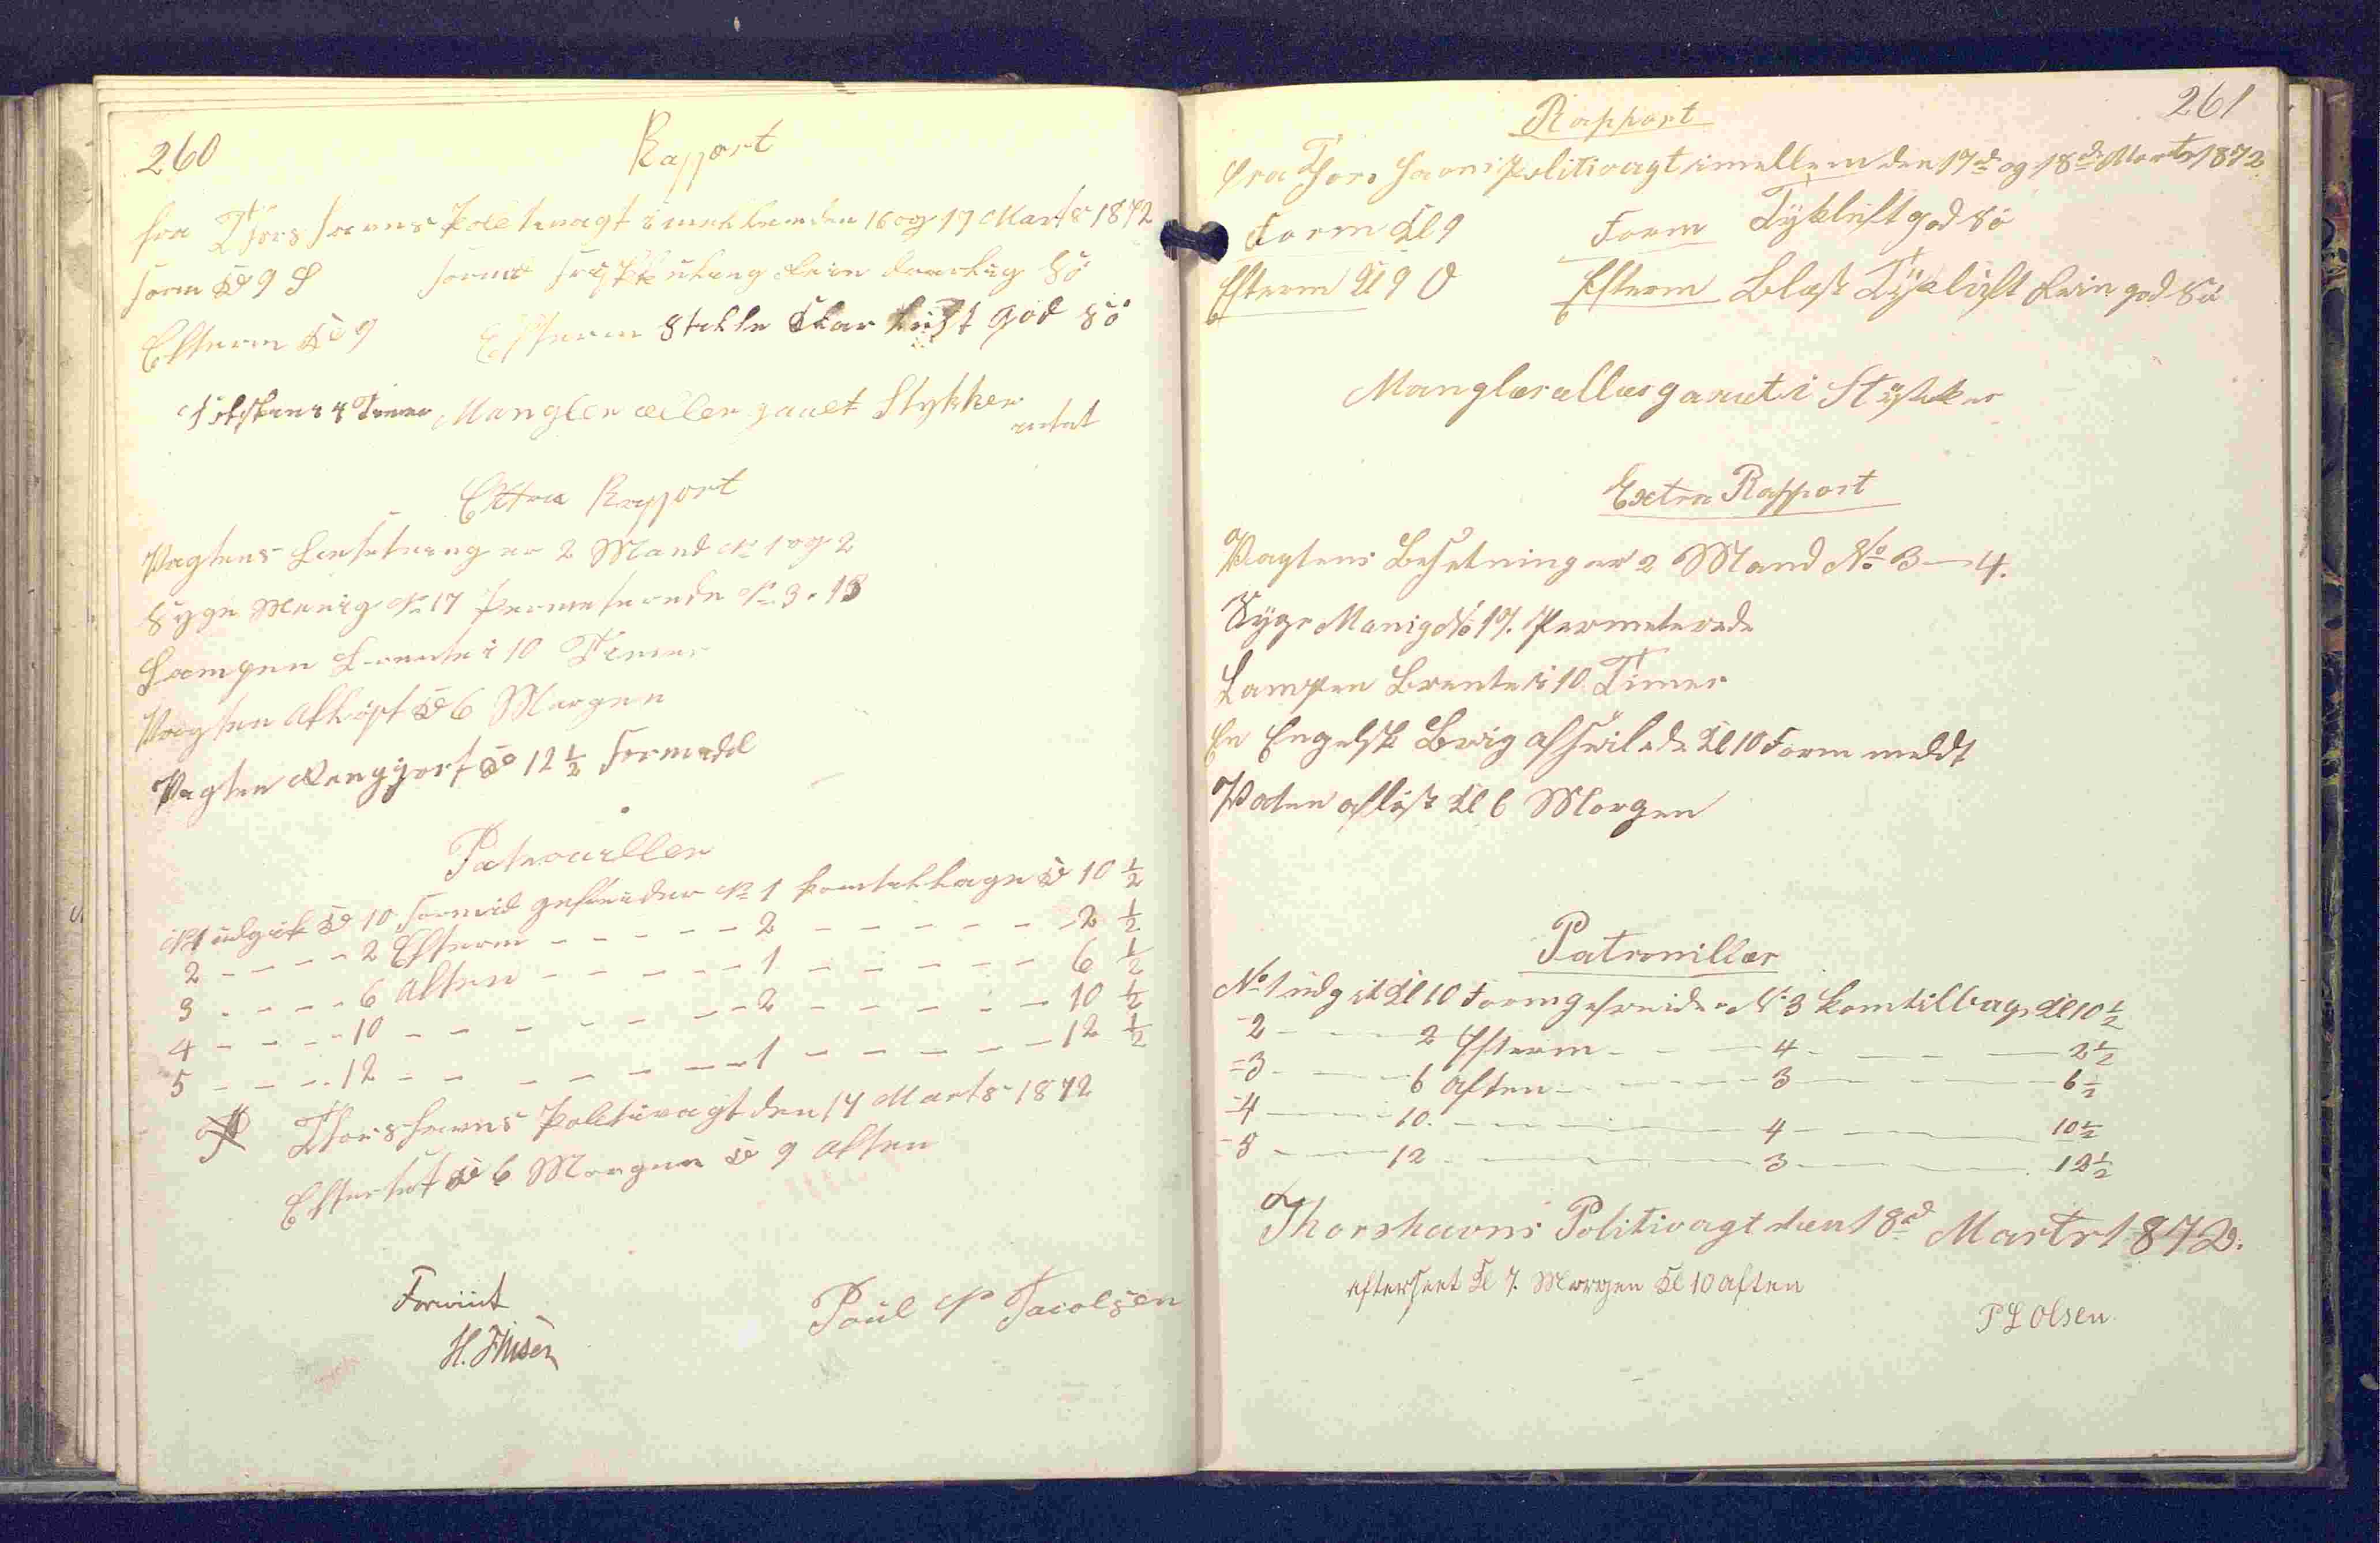 260
Rapport
fra Thorshavns Politivagt imellem den 16 og 17 Marts 1872
Form Kl 9 S Form frisk Kuling Rein daarlig Sö
Efterm Kl 9 Efterm Stille Klar Luft god Sö
4 Timer Mangler eller gaaet Stykker
intet
Extra Rapport
Vagtens Besetning er 2 Mand No 1 og 2
Syge Menig No 17 Permeterede No 3. 13
Lampen Brente i 10 Timer
Vagten Aflöst Kl 6 Morgen
Vagten Rengjort Kl 12 1/2 Formedd
Patrouiller
No 1 udgik Kl 10 Formid gefreider No 1 kom tilbage Kl 10 1/2
2 - - - - 2 Efterm - - - - - 2 - - - - - - 2 1/2
3 - - - - 6 Aften - - - - - 1 - - - - - - 6 1/2
4 - - - - 10 - - - - - - - 2 - - - - - - 10 1/2
5 - - - - 12 - - - - - - - 1 - - - - - 12 1/2
Thorshavns Politivagt den 17 Marts 1872
Efterset Kl 6 Morgen Kl 9 Aften
Forviist
Poul N Jacobsen
261
Rapport
fra Thorshavns Politivagt imellem den 17d og 18d Marts 1872
Form Kl 9 Form Tÿkluft god Sö
Efterm Kl 9 O Efterm Blæst Tÿkluft Rein god Sö
Mangler eller gaaet i Stÿkker
Extra Rapport
Vagtens Besetning er 2 Mand No 3 — 4.
Sÿge Manig No 17. Permeterede
Lampen Brente i 10 Timer
En Engelsk Brig afseilede Kl 10 Form meldt
Vaten aflöst Kl 6 Morgen
Patrouiller
No 1 udgik Kl 10 Form gefreider No 3 kom tilbage Kl 10 1/2
-2 - - - 2 Efterm - - - 4 - - - - 2 1/2
=3 - - - 6 Aften - - - 3 - - - - 6 1/2
-4 - - - 10. - - - 4 - - - - 10 1/2
-5 - - - 12 - - - 3 - - - - 12 1/2
Thorshavns Politivagt den 18d Marts 1872.
efterseet Kl 7. Morgen Kl 10 aften
P L Olsen